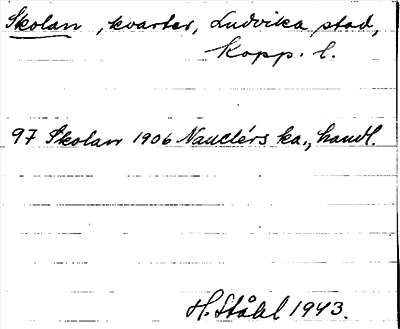 Skolan, kvarter, Ludvika stad,
Kopp. l.
97 Skolan 1906 Nauclérs ka., handl.
H. Ståhl 1943.